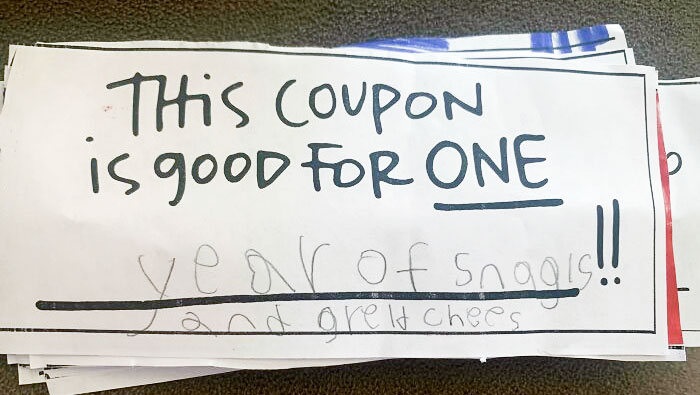 THiS COUPON
is gOOD FOR ONE
year of snagls!!
and grelt chees